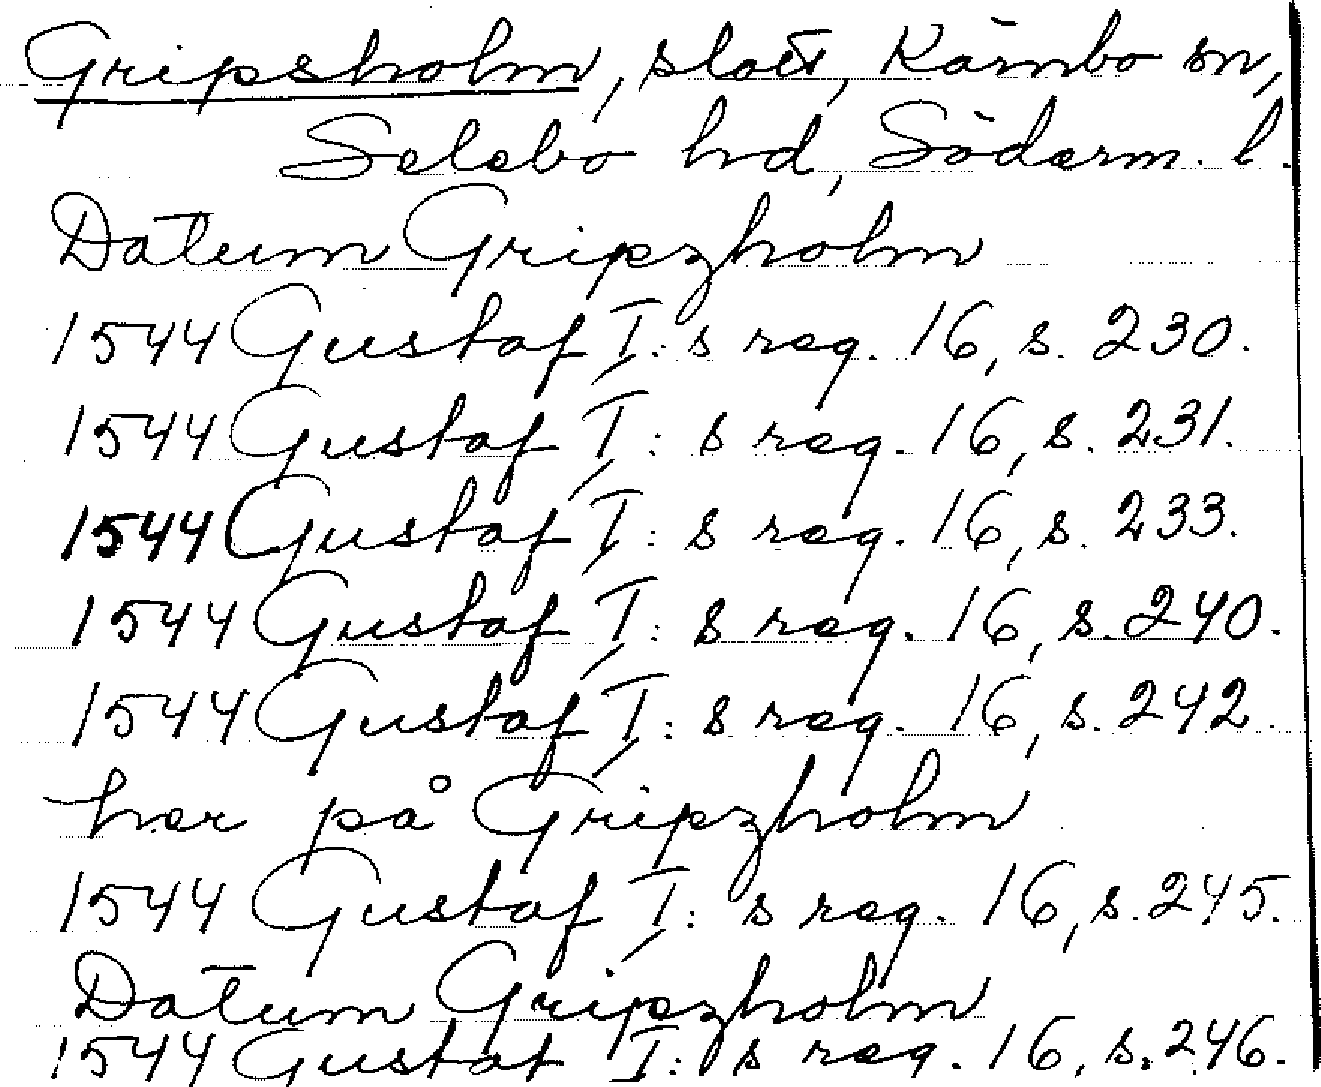 Gripsholm, slott, Kärnbo sn,
Selebo hd, Söderm. l.
Datum Gripzholm
1544 Gustaf I: s reg. 16, s. 230.
1544 Gustaf I: s reg. 16, s. 231.
1544 Gustaf I: s reg. 16, s. 233.
1544 Gustaf I: s reg. 16, s. 240.
1544 Gustaf I: s reg. 16, s. 242.
her på Gripzholm
1544 Gustaf I: s reg. 16, s. 245.
Datum Gripzholm
1544 Gustaf I: s reg. 16, s. 246.